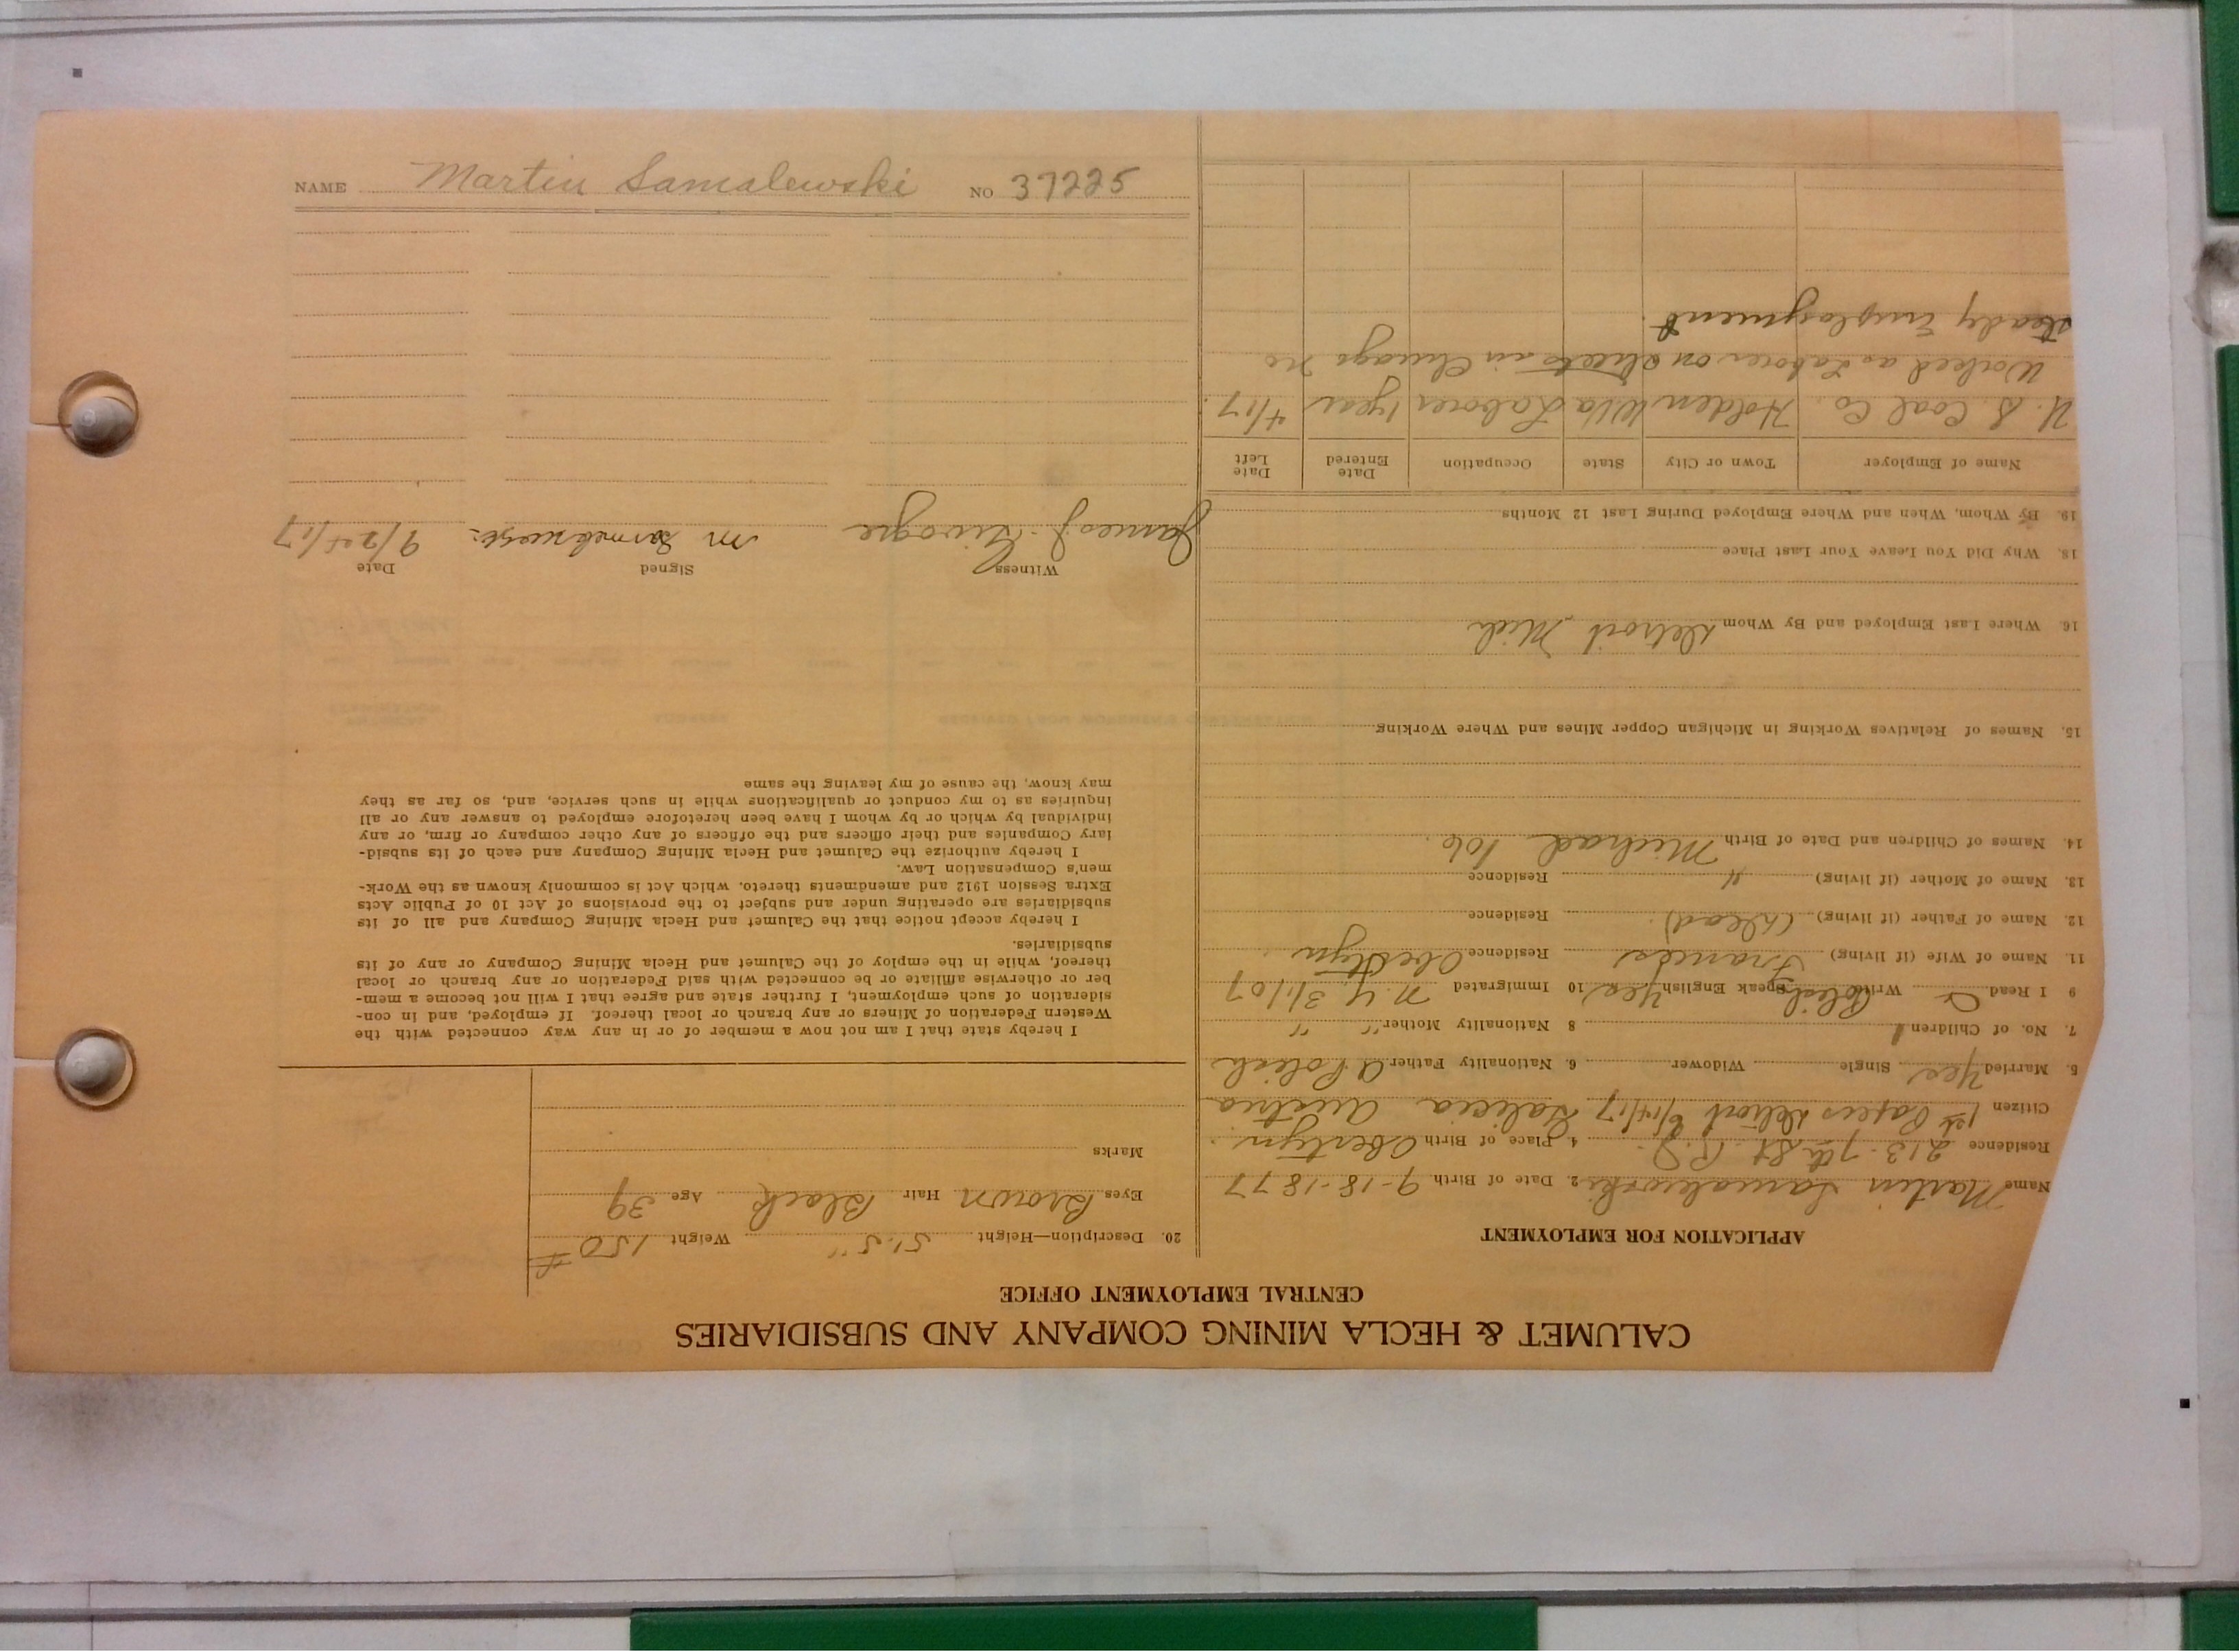 CALUMET & HECLA MINING COMPANY AND SUBSIDIARIES
CENTRAL EMPLOYMENT OFFICE
APPLICATION FOR EMPLOYMENT
Name Martin Samalewski 2. Date of Birth 9-18-1877
Residence 213-7th St. 4. Place of Birth Obertyn
Citizen 1st Papers Detroit 6/14/17 Galicia Austria
5. Married Yes Single Widower 6. Nationality Father A Polish
7. No. of Children 1 8 Nationality Mother " "
9 I Read Write Polish Speak English Yes 10 Immigrated N.Y 3/1/07
11. Name of Wife (if living) Frances Residence Obertyn
12. Name of Father (if living) (Dead) Residence
13. Name of Mother (if living) " Residence
14. Names of Children and Date of Birth Michael 106.
15. Names of Relatives Working in Michigan Copper Mines and Where Working
16. Where Last Employed and By Whom Detroit Mich
18. Why Did You Leave Your Last Place
19. By Whom, When and Where Employed During Last 12 Months
Name of Employer Town or City State Occupation Date Entered Date Left
U. S. Coal Co. Holden W Va Laborer 1 year 4/17.
Worked as Laborer on streets in Chicago no
steady Employment.
20. Description—Height 5'.5" Weight 150 #
Eyes Brown Hair Black Age 39
Marks
I hereby state that I am not now a member of or in any way connected with the
Western Federation of Miners or any branch or local thereof. If employed, and in con-
sideration of such employment, I further state and agree that I will not become a mem-
ber or otherwise affiliate or be connected with said Federation or any branch or local
thereof, while in the employ of the Calumet and Hecla Mining Company or any of its
subsidiaries.
I hereby accept notice that the Calumet and Hecla Mining Company and all of its
subsidiaries are operating under and subject to the provisions of Act 10 of Public Acts
Extra Session 1912 and amendments thereto, which Act is commonly known as the Work-
men's Compensation Law.
I hereby authorize the Calumet and Hecla Mining Company and each of its subsid-
iary Companies and their officers and the officers of any other company or firm, or any
individual by which or by whom I have been heretofore employed to answer any or all
inquiries as to my conduct or qualifications while in such service, and, so far as they
may know, the cause of my leaving the same
Witness Signed Date
James J. M 9/24/17
NAME Martin Samalewski NO 37225